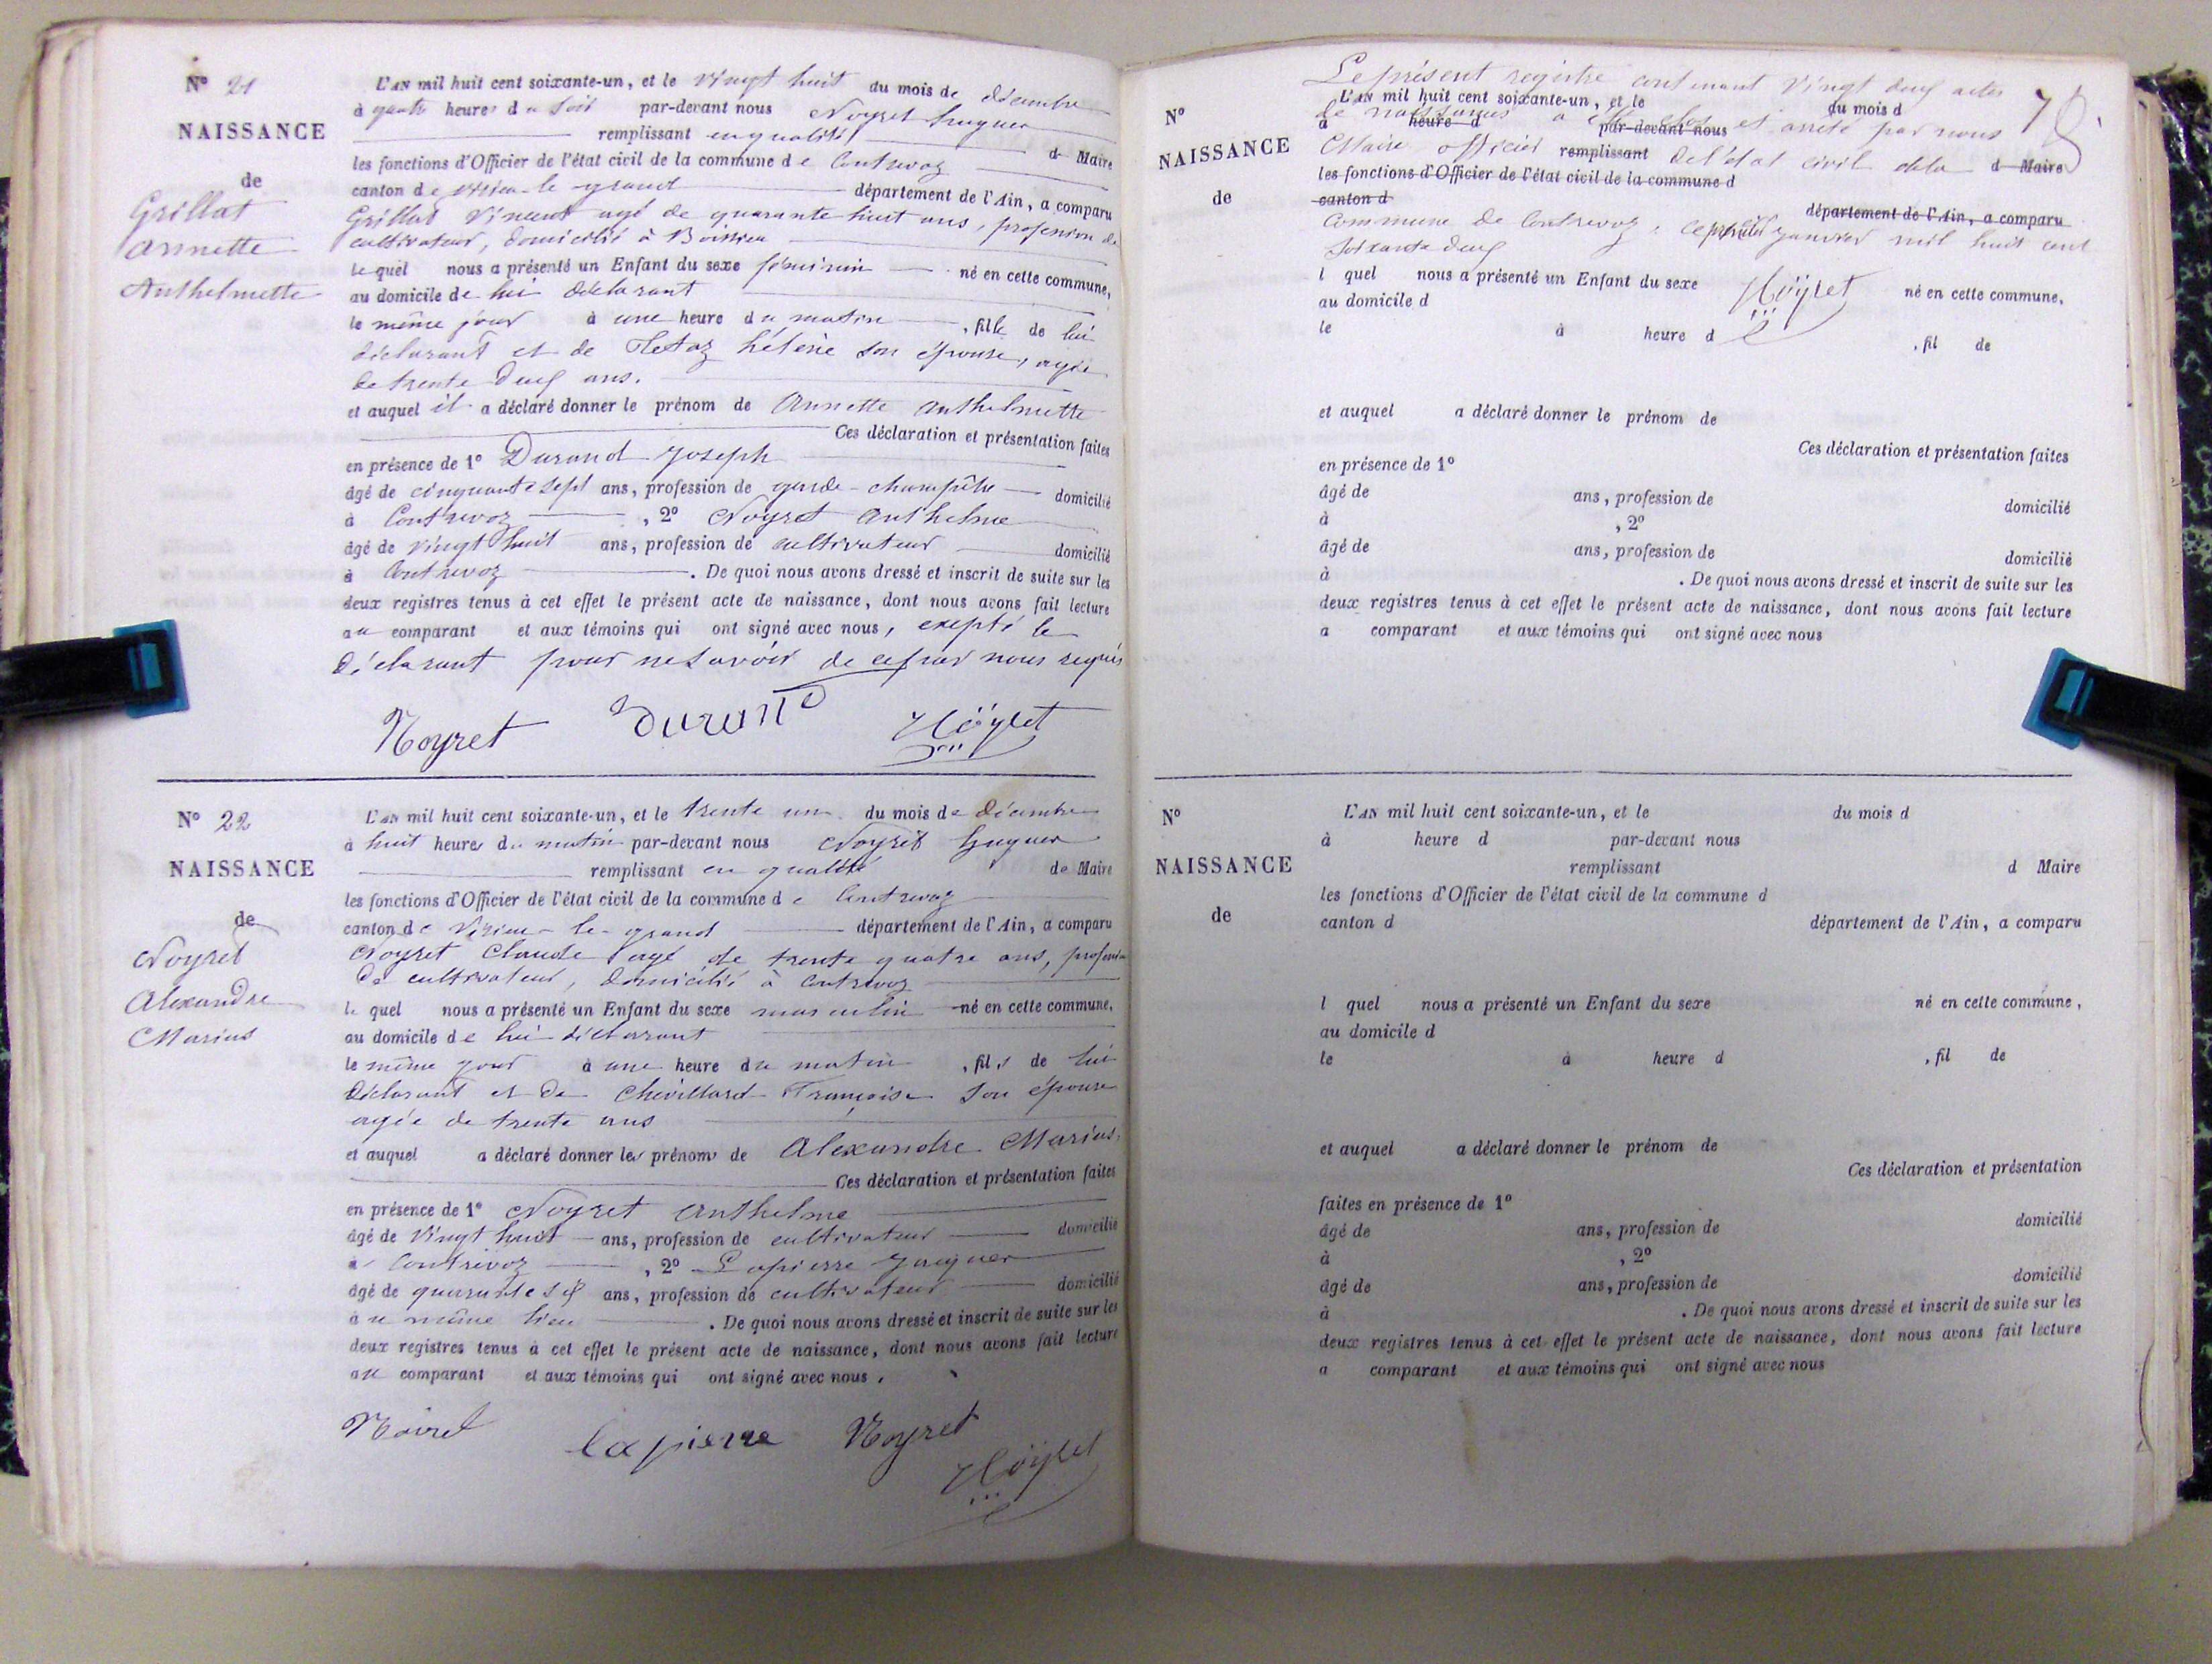 N° 21
NAISSANCE
de
Grillat
Annette
Anthelmette
L'AN mil huit cent soixante-un, et le vingt huit du mois de décembre
à quatre heures du soir par-devant nous Noyret Jacques
remplissant en qualité d Maire
les fonctions d'Officier de l'état civil de la commune de Contrevoz
canton de Virieu-le-grand département de l'Ain, a comparu
Grillat Vincent agé de quarante huit ans, profession de
cultivateur, domicilié à Boissieu
lequel nous a présenté un Enfant du sexe féminin né en cette commune,
au domicile de lui déclarant
le même jour à une heure du matin, fille de lui
déclarant et de hélène son épouse, agée
de trente deux ans.
et auquel il a déclaré donner le prénom de Annette Anthelmette
Ces déclaration et présentation faites
en présence de 1° Durand Joseph
âgé de cinquante sept ans, profession de garde-champêtre domicilié
à Contrevoz, 2° Noyret Anthelme
âgé de vingt huit ans, profession de cultivateur domicilié
à Contrevoz. De quoi nous avons dressé et inscrit de suite sur les
deux registres tenus à cet effet le présent acte de naissance, dont nous avons fait lecture
au comparant et aux témoins qui ont signé avec nous, exepté le
déclarant pour ne savoir de ce par nous requis
Noyret Durand Nöyret
N° 22
NAISSANCE
de
Noyret
Alexandre
Marius
L'AN mil huit cent soixante-un, et le trente un du mois de décembre
à huit heures du matin par-devant nous Noyret Jacques
remplissant en qualité de Maire
les fonctions d'Officier de l'état civil de la commune de Contrevoz
canton de Virieu-le-grand département de l'Ain, a comparu
Noyret Claude agé de trente quatre ans, profession
de cultivateur, domicilié à Contrevoz
lequel nous a présenté un Enfant du sexe masculin né en cette commune,
au domicile de lui déclarant
le même jour à une heure du matin, fils de lui
déclarant et de Chevillard Françoise son épouse
agée de trente ans
et auquel a déclaré donner les prénoms de Alexandre Marius.
Ces déclaration et présentation faites
en présence de 1° Noyret Anthelme
âgé de vingt huit ans, profession de cultivateur domicilié
à Contrevoz, 2° Lapierre Jacques
âgé de quarante six ans, profession de cultivateur domicilié
au même lieu. De quoi nous avons dressé et inscrit de suite sur les
deux registres tenus à cet effet le présent acte de naissance, dont nous avons fait lecture
au comparant et aux témoins qui ont signé avec nous.
Noiret lapierre Noyret
Nöyret
Le présent registre contenant vingt deux actes
N° L'AN mil huit cent soixante-un, et le du mois d
de naissances a été clos et arrêté par nous
à heure d par-devant nous
NAISSANCE
Maire officier remplissant de l'état civil de la d Maire
les fonctions d'Officier de l'état civil de la commune d
de
canton d département de l'Ain, a comparu
Commune de Contrevoz, ce premier janvier mil huit cent
soixante deux
l quel nous a présenté un Enfant du sexe Nöyret né en cette commune,
au domicile d
le à heure d, fil de
et auquel a déclaré donner le prénom de
Ces déclaration et présentation faites
en présence de 1°
âgé de ans, profession de domicilié
à , 2°
âgé de ans, profession de domicilié
à . De quoi nous avons dressé et inscrit de suite sur les
deux registres tenus à cet effet le présent acte de naissance, dont nous avons fait lecture
a comparant et aux témoins qui ont signé avec nous
N°
NAISSANCE
de
L'AN mil huit cent soixante-un, et le du mois d
à heure d par-devant nous
remplissant d Maire
les fonctions d'Officier de l'état civil de la commune d
canton d département de l'Ain, a comparu
l quel nous a présenté un Enfant du sexe né en cette commune,
au domicile d
le à heure d, fil de
et auquel a déclaré donner le prénom de
Ces déclaration et présentation
faites en présence de 1°
âgé de ans, profession de domicilié
à , 2°
âgé de ans, profession de domicilié
à . De quoi nous avons dressé et inscrit de suite sur les
deux registres tenus à cet effet le présent acte de naissance, dont nous avons fait lecture
a comparant et aux témoins qui ont signé avec nous